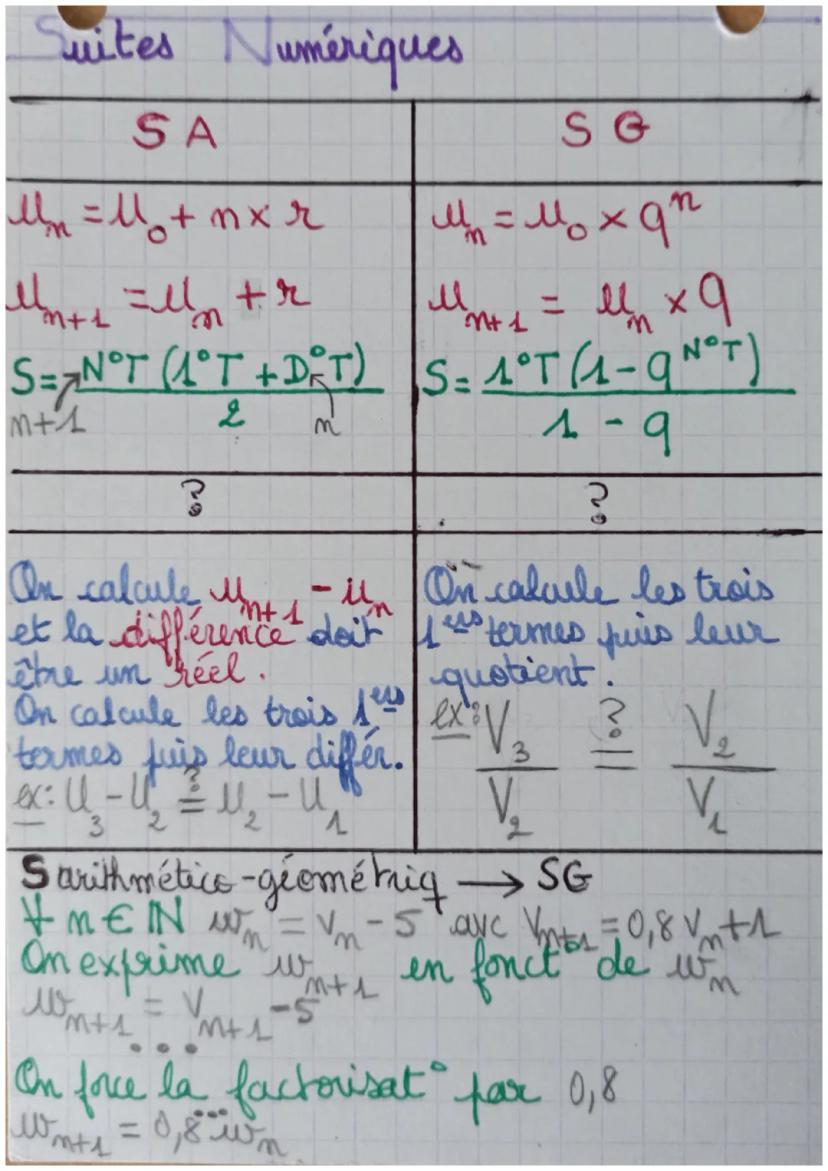 Suites Numériques
SA
SG
u_n = u_0 + n × r
u_n = u_0 × q^n
u_{n+1} = u_n + r
u_{n+1} = u_n × q
S = N°T (1°T + D°T) / 2
n+1
n
S = 1°T (1 - q^{N°T}) / 1 - q
?
?
On calcule u_{n+1} - u_n
et la différence doit
être un réel.
On calcule les trois 1ers
termes puis leur différ.
ex: U_3 - U_2 ?= U_2 - U_1
On calcule les trois
1ers termes puis leur
quotient.
ex: V_3 / V_2 ?= V_2 / V_1
S arithmético-géométriq → SG
∀ n ∈ ℕ w_n = v_n - 5 avc v_{n+1} = 0,8 v_n + 1
On exprime w_{n+1} en fonct° de w_n
w_{n+1} = v_{n+1} - 5
...
On force la factorisat° par 0,8
...
w_{n+1} = 0,8 w_n